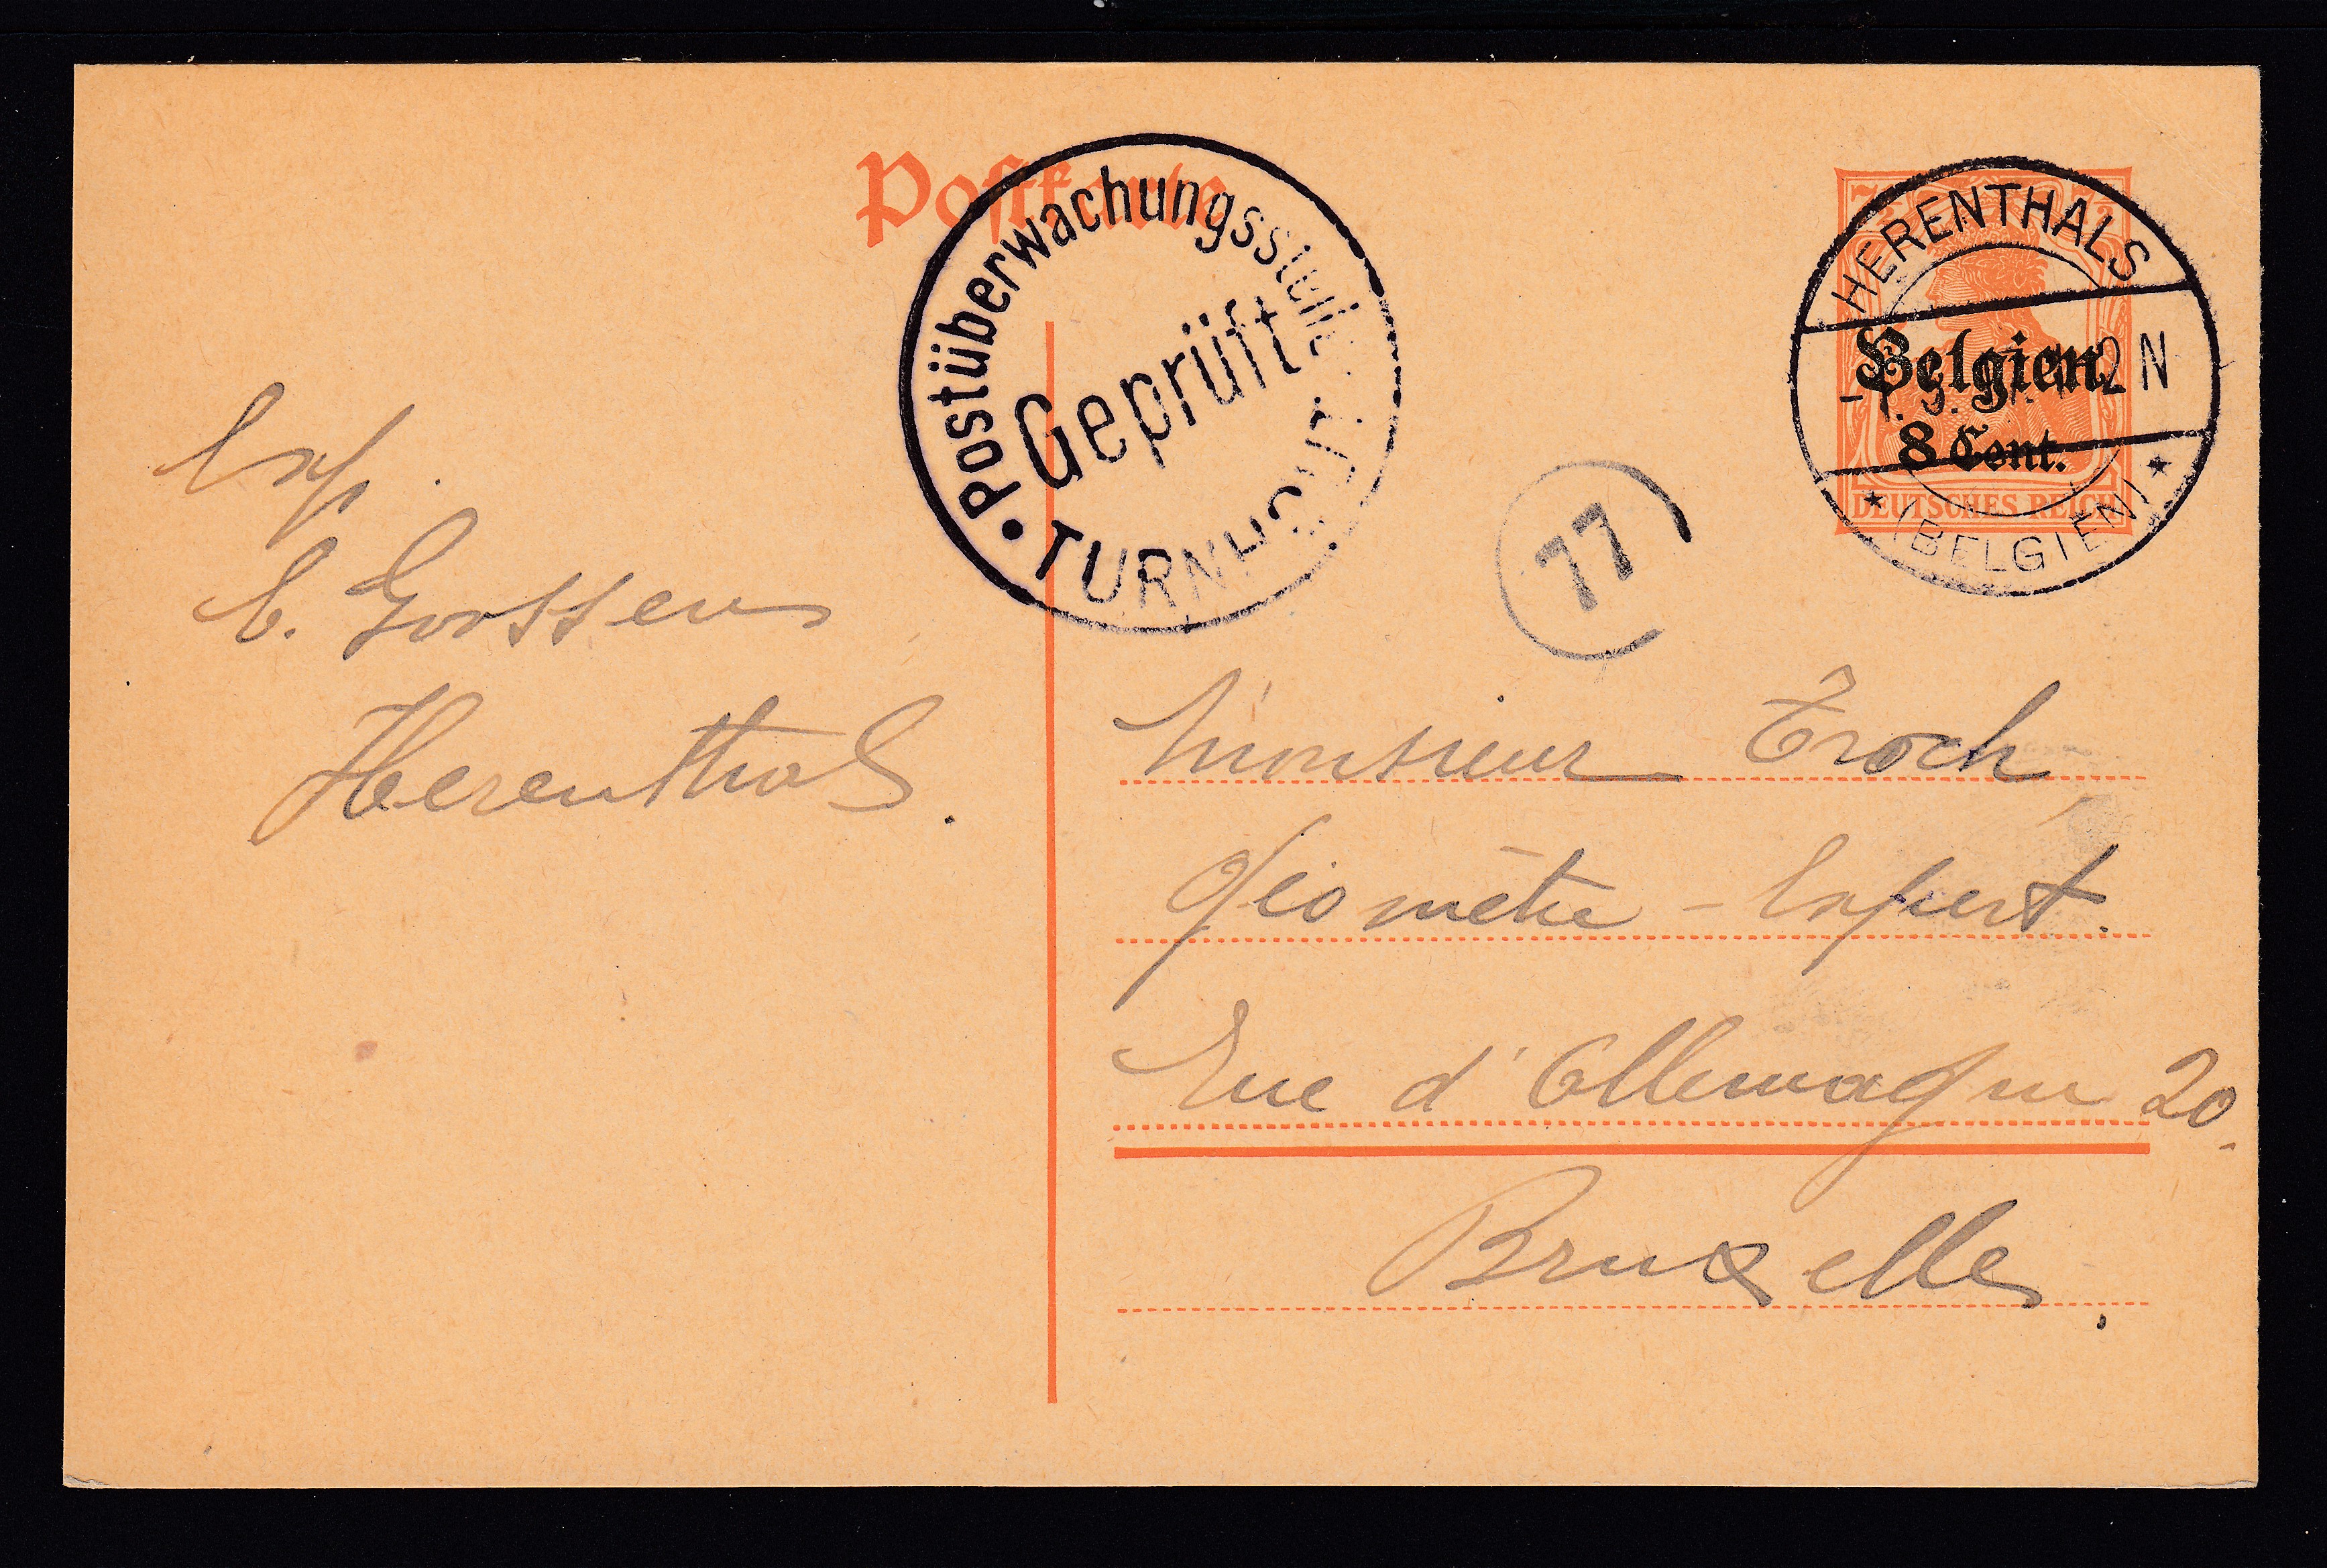 Postkarte
• Postüberwachungsstelle •
Geprüft
TURNHOUT
HERENTHALS
7½ 7½
Belgien
2 N
8 Cent.
DEUTSCHES REICH
* (BELGIEN) *
77
Exp.
C. Goossens
Herenthals.
Monsieur Troch
Géomètre - Expert.
Rue d'Allemagne 20.
Bruxelles.